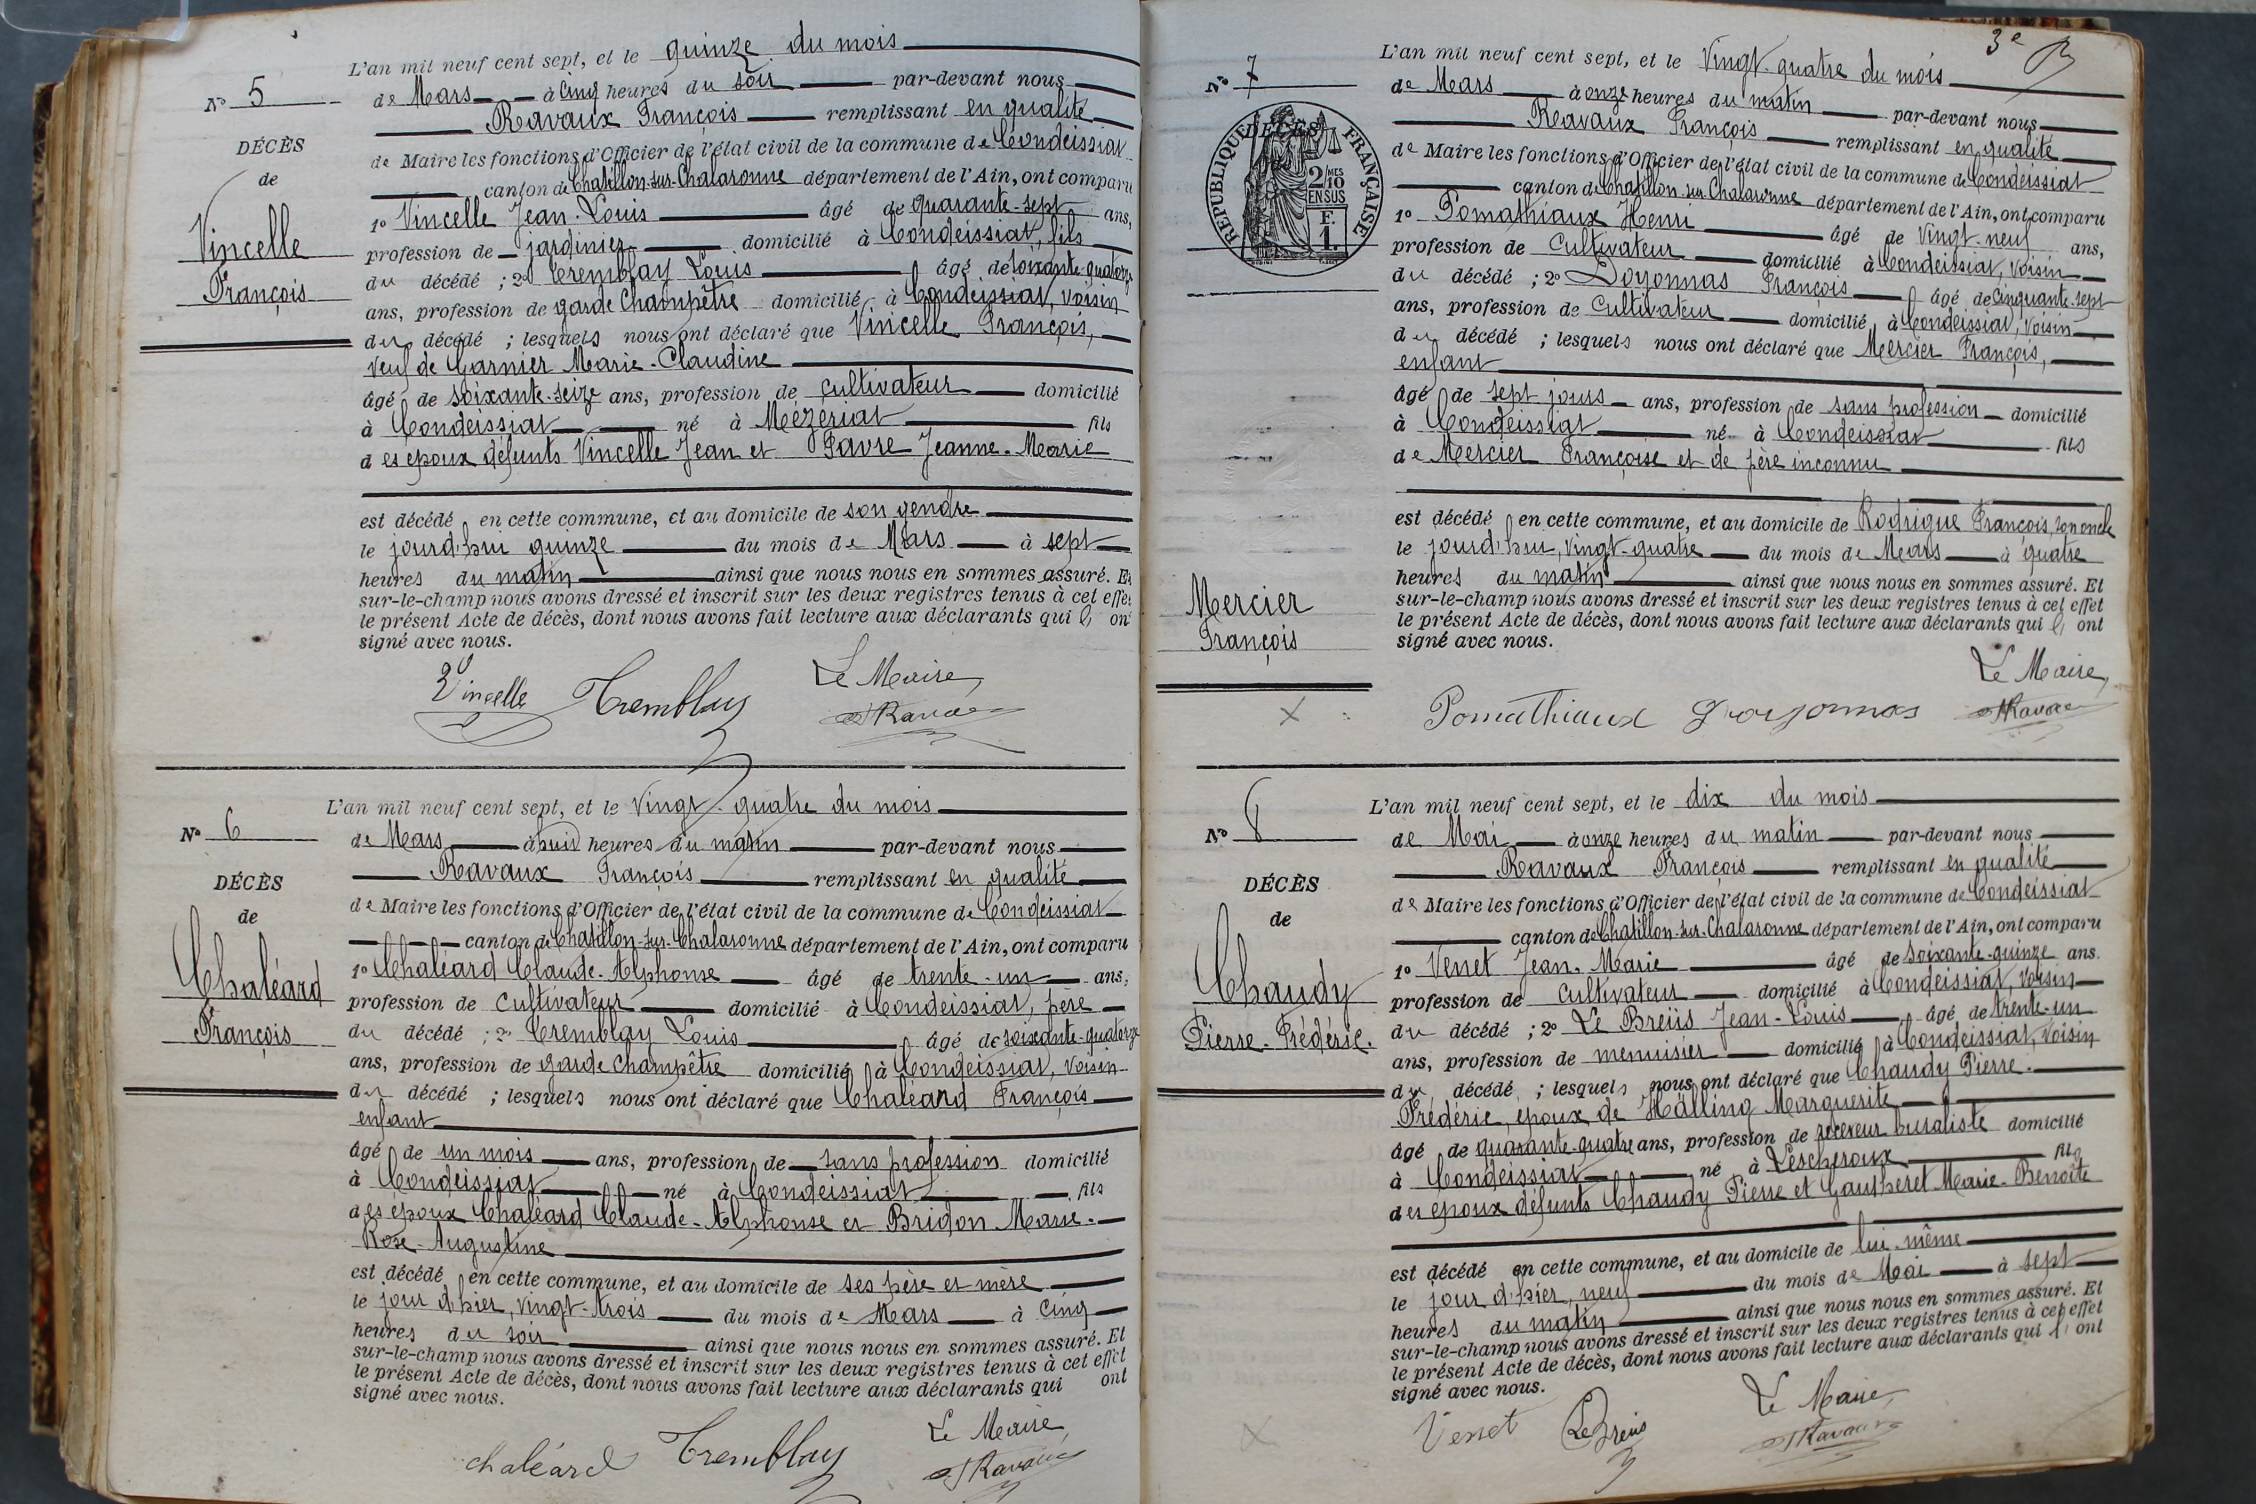 L'an mil neuf cent sept, et le quinze du mois
N° 5
de Mars à cinq heures du soir par-devant nous
Ravaux François remplissant en qualité
DÉCÈS
de Maire les fonctions d'Officier de l'état civil de la commune de Condeissiat
de
canton de Chatillon-sur-Chalaronne département de l'Ain, ont comparu
Vincelle
François
1° Vincelle Jean-Louis âgé de quarante-sept ans,
profession de jardinier domicilié à Condeissiat, fils
du décédé ; 2° Tremblay Louis âgé de soixante-quatorze
ans, profession de garde champêtre domicilié à Condeissiat, voisin
du décédé ; lesquels nous ont déclaré que Vincelle François,
veuf de Garnier Marie-Claudine
âgé de soixante-seize ans, profession de cultivateur domicilié
à Condeissiat né à Mézériat fils
des époux défunts Vincelle Jean et Favre Jeanne-Marie
est décédé en cette commune, et au domicile de son gendre
le jourd'hui quinze du mois de Mars à sept
heures du matin ainsi que nous nous en sommes assuré. Et
sur-le-champ nous avons dressé et inscrit sur les deux registres tenus à cet effet
le présent Acte de décès, dont nous avons fait lecture aux déclarants qui l' ont
signé avec nous.
Le Maire,
Vincelle Tremblay Ravaux
L'an mil neuf cent sept, et le vingt-quatre du mois
N° 6
de Mars à huit heures du matin par-devant nous
Ravaux François remplissant en qualité
DÉCÈS
de Maire les fonctions d'Officier de l'état civil de la commune de Condeissiat
de
canton de Chatillon-sur-Chalaronne département de l'Ain, ont comparu
Chaléard
François
1° Chaléard Claude-Alphonse âgé de trente-un ans,
profession de cultivateur domicilié à Condeissiat, père
du décédé ; 2° Tremblay Louis âgé de soixante-quatorze
ans, profession de garde champêtre domicilié à Condeissiat, voisin
du décédé ; lesquels nous ont déclaré que Chaléard François
enfant
âgé de un mois ans, profession de sans profession domicilié
à Condeissiat né à Condeissiat fils
des époux Chaléard Claude-Alphonse et Brigon Marie-
Rose-Augustine
est décédé en cette commune, et au domicile de ses père et mère
le jour d'hier, vingt-trois du mois de Mars à cinq
heures du soir ainsi que nous nous en sommes assuré. Et
sur-le-champ nous avons dressé et inscrit sur les deux registres tenus à cet effet
le présent Acte de décès, dont nous avons fait lecture aux déclarants qui ont
signé avec nous.
Le Maire,
chaléard Tremblay Ravaux
3e
L'an mil neuf cent sept, et le vingt-quatre du mois
N° 7
de Mars à onze heures du matin par-devant nous
Ravaux François remplissant en qualité
DÉCÈS
RÉPUBLIQUE FRANÇAISE
2 MES
10
EN SUS
F.
1.
de Maire les fonctions d'Officier de l'état civil de la commune de Condeissiat
canton de Chatillon-sur-Chalaronne département de l'Ain, ont comparu
1° Pomathiaux Henri âgé de vingt-neuf ans,
profession de cultivateur domicilié à Condeissiat, voisin
du décédé ; 2° Doyonnas François âgé de cinquante-sept
ans, profession de cultivateur domicilié à Condeissiat, voisin
du décédé ; lesquels nous ont déclaré que Mercier François,
enfant
âgé de sept jours ans, profession de sans profession domicilié
à Condeissiat né à Condeissiat fils
de Mercier Françoise et de père inconnu
est décédé en cette commune, et au domicile de Rodrigue François, son oncle
le jourd'hui, vingt-quatre du mois de Mars à quatre
heures du matin ainsi que nous nous en sommes assuré. Et
Mercier
François
sur-le-champ nous avons dressé et inscrit sur les deux registres tenus à cet effet
le présent Acte de décès, dont nous avons fait lecture aux déclarants qui l' ont
signé avec nous.
Le Maire,
X
Pomathiaux Doyonnas Ravaux
L'an mil neuf cent sept, et le dix du mois
N° 8
de Mai à onze heures du matin par-devant nous
Ravaux François remplissant en qualité
DÉCÈS
de Maire les fonctions d'Officier de l'état civil de la commune de Condeissiat
de
canton de Chatillon-sur-Chalaronne département de l'Ain, ont comparu
Chaudy
Pierre-Frédéric.
1° Venet Jean-Marie âgé de soixante-quinze ans.
profession de cultivateur domicilié à Condeissiat, voisin
du décédé ; 2° Le Breüs Jean-Louis âgé de trente-un
ans, profession de menuisier domicilié à Condeissiat, voisin
du décédé ; lesquels nous ont déclaré que Chaudy Pierre-
Frédéric, époux de Hälling Marguerite
âgé de quarante-quatre ans, profession de receveur buraliste domicilié
à Condeissiat né à Lescheroux fils
des époux défunts Chaudy Pierre et Gautheret Marie-Benoite
est décédé en cette commune, et au domicile de lui-même
le jour d'hier, neuf du mois de Mai à sept
heures du matin ainsi que nous nous en sommes assuré. Et
sur-le-champ nous avons dressé et inscrit sur les deux registres tenus à cet effet
le présent Acte de décès, dont nous avons fait lecture aux déclarants qui l' ont
signé avec nous.
Le Maire,
X
Venet Le Breüs Ravaux